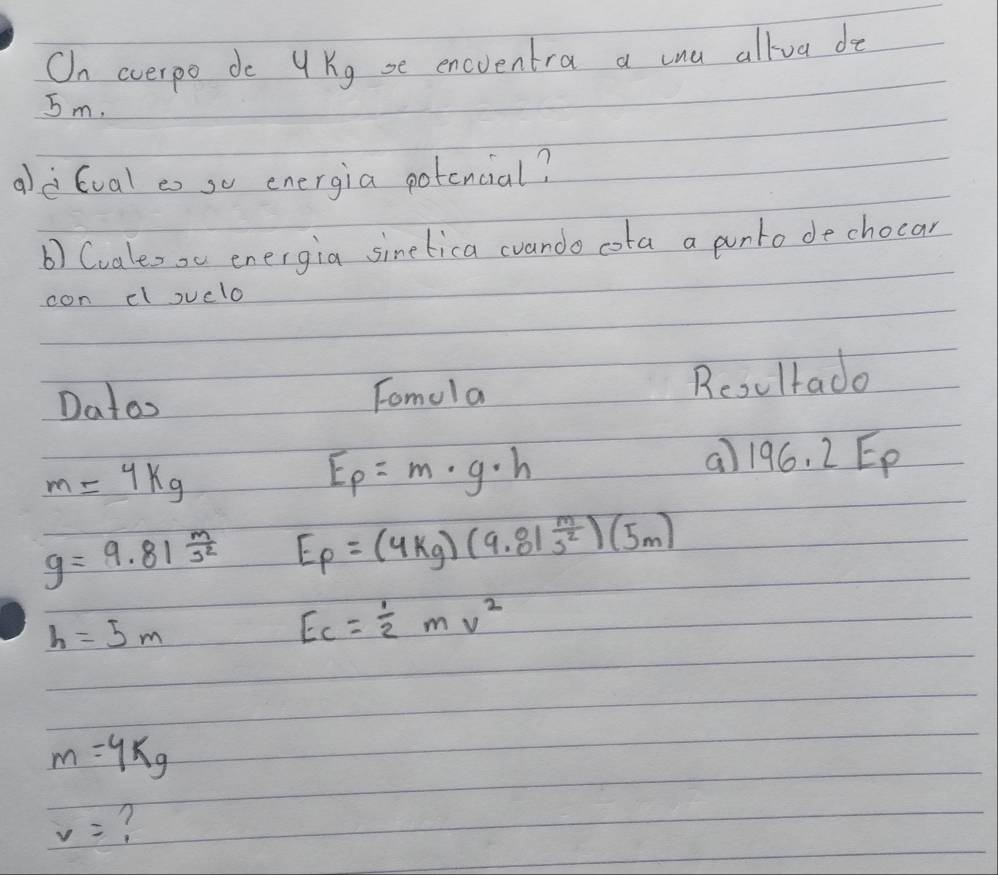 Un cuerpo de 4 Kg se encuentra a una altua de
5 m.
a) ¿Cual es su energia potencial?
b) Cuales su energia sinetica cuando esta a punto de chocar
con el suelo
Datos Fomula Resultado
m = 4Kg Ep = m · g · h a) 196.2 Ep
g = 9.81 m/s² Ep = (4Kg) (9.81 m/s²) (5m)
h = 5 m Ec = ½ m v²
m = 4Kg
v = ?